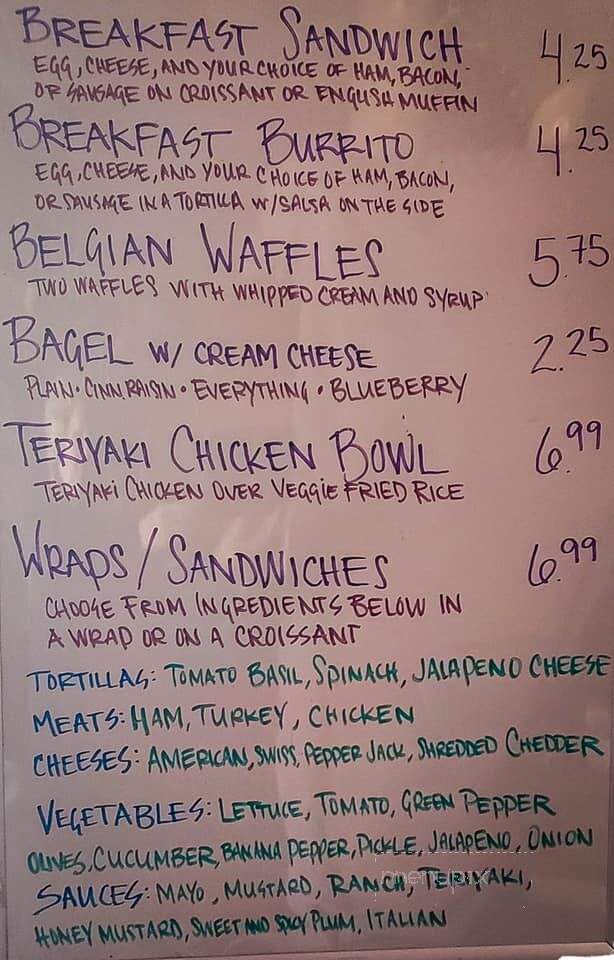 BREAKFAST SANDWICH 4.25
EGG, CHEESE, AND YOUR CHOICE OF HAM, BACON,
OR SAUSAGE ON CROISSANT OR ENGLISH MUFFIN
BREAKFAST BURRITO 4.25
EGG, CHEESE, AND YOUR CHOICE OF HAM, BACON,
OR SAUSAGE IN A TORTILLA W/SALSA ON THE SIDE
BELGIAN WAFFLES 5.75
TWO WAFFLES WITH WHIPPED CREAM AND SYRUP
BAGEL W/ CREAM CHEESE 2.25
PLAIN • CINN. RAISIN • EVERYTHING • BLUEBERRY
TERIYAKI CHICKEN BOWL 6.99
TERIYAKI CHICKEN OVER VEGGIE FRIED RICE
WRAPS/SANDWICHES 6.99
CHOOSE FROM INGREDIENTS BELOW IN
A WRAP OR ON A CROISSANT
TORTILLAS: TOMATO BASIL, SPINACH, JALAPENO CHEESE
MEATS: HAM, TURKEY, CHICKEN
CHEESES: AMERICAN, SWISS, PEPPER JACK, SHREDDED CHEDDER
VEGETABLES: LETTUCE, TOMATO, GREEN PEPPER
OLIVES, CUCUMBER, BANANA PEPPER, PICKLE, JALAPENO, ONION
SAUCES: MAYO, MUSTARD, RANCH, TERIYAKI,
HONEY MUSTARD, SWEET AND SPICY PLUM, ITALIAN